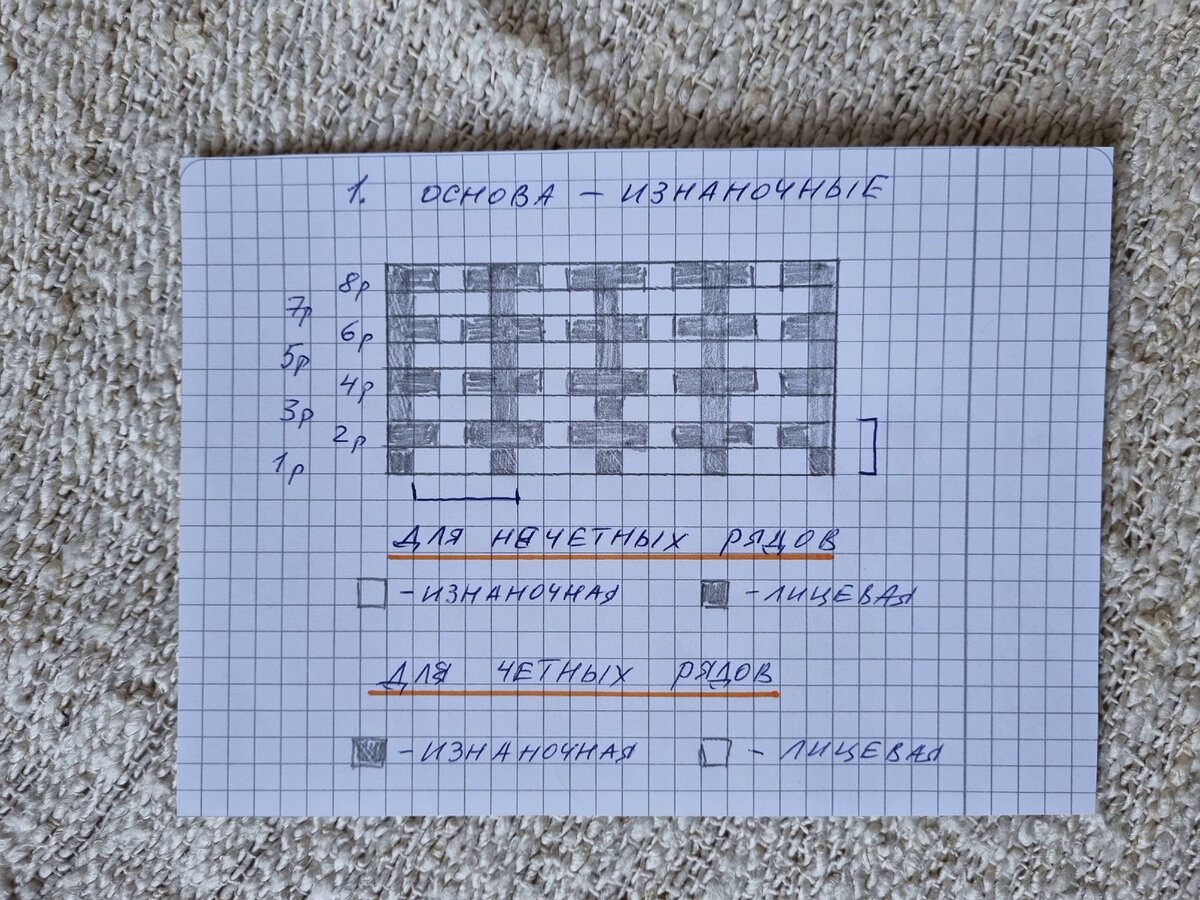 1. ОСНОВА – ИЗНАНОЧНЫЕ
8р
7р
6р
5р
4р
3р
2р
1р
ДЛЯ НЕЧЕТНЫХ РЯДОВ
– ИЗНАНОЧНАЯ – ЛИЦЕВАЯ
ДЛЯ ЧЕТНЫХ РЯДОВ
– ИЗНАНОЧНАЯ – ЛИЦЕВАЯ